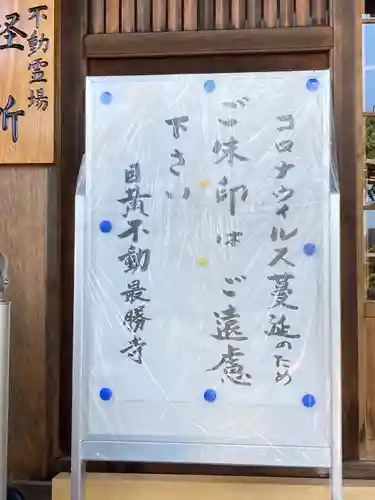 コロナウィルス蔓延のため
ご味印はご遠慮
下さい
目黄不動最勝寺
不動霊場